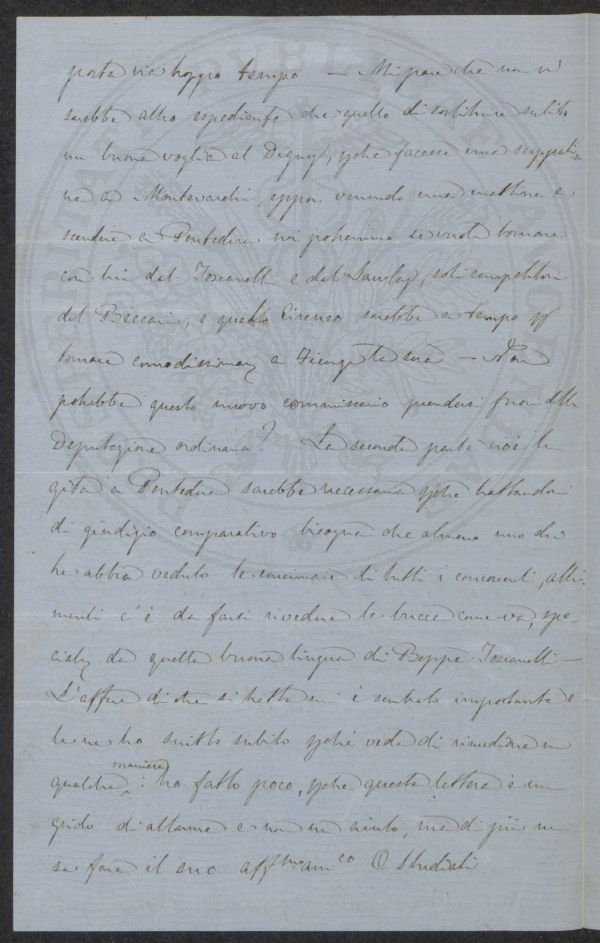 porta via troppo tempo — Mi pare che non vi
sarebbe altro espediente che quello di sostituire subito
un buona voglia al Digny, pche facesse una scappati-
na a Montevarchi, eppoi venendo una mattina a
scendere a Pontedera noi potremmo se vuole tornare
con lui dal Toscanelli e dal Lawley, soli competitori
del Beccari, e questo Cireneo sarebbe a tempo p
tornare comodissimam a Firenze la sera — Non
potrebbe questo nuovo commissario prendersi fuori della
Deputazione ordinaria? La seconda parte cioè la
gita a Pontedera sarebbe necessaria pche trattandosi
di giudizio comparativo bisogna che almeno uno di
he abbia veduto le concimaie di tutti i concorrenti, altri-
menti c'è da farsi rivedere le bucce come va, spe-
cialm da quella buona lingua di Beppe Toscanelli —
L'affare di che si tratta mi è sembrato importante e
le ne ho scritto subito pchè veda di rimediare in
qualche maniera; ho fatto poco, pche questa lettera è un
grido di allarme e non un aiuto, ma di più non
sa fare il suo aff mo am co C Studiati